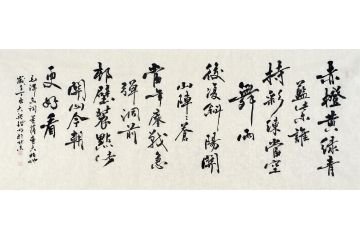 赤橙黄绿青
藍紫誰
持彩練當空
舞雨
後復斜陽關
山陣々蒼
當年鏖戰急
彈洞前
邨壁裝點此
關山今朝
更好看
毛澤東詞菩薩蠻大柏地